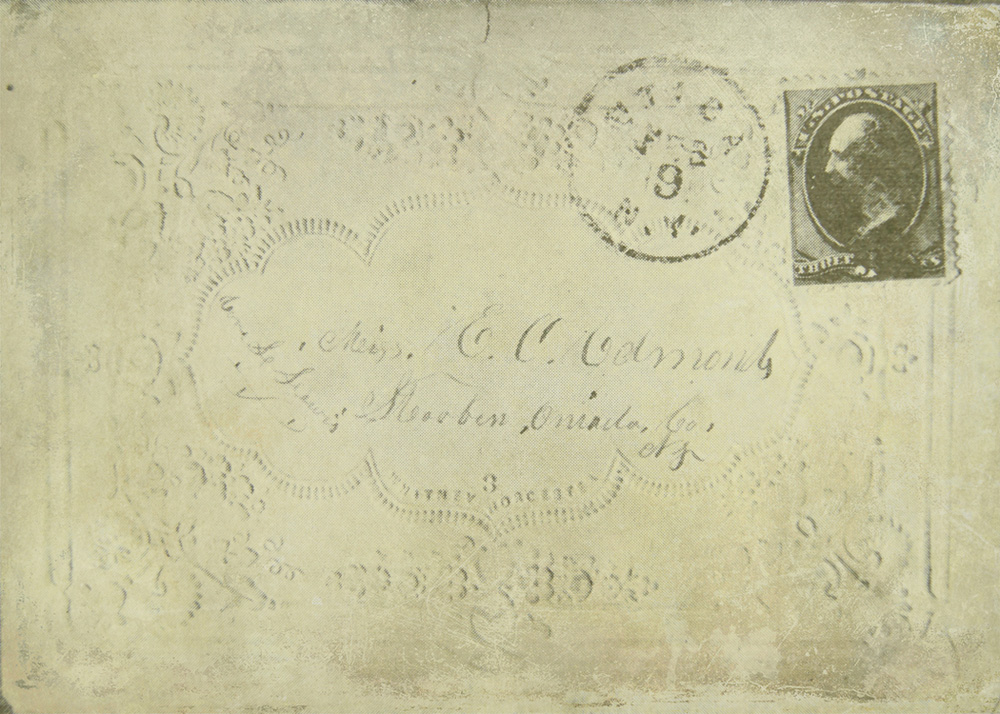 UTICA
APR
9
N.Y.
U.S. POSTAGE
THREE
Miss. E. C. Edmonds
Steuben, Oniada, Co,
NY
WHITNEY WORCESTER